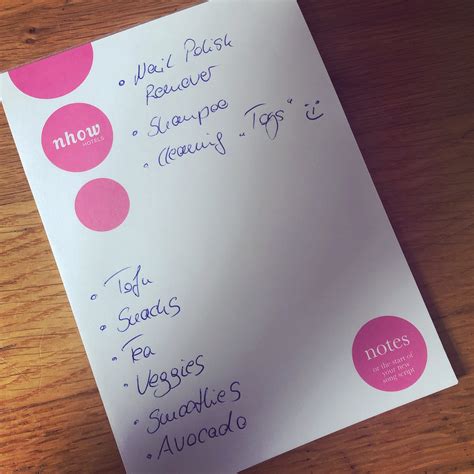 nhow
HOTELS
• Nail Polish
Remover
• Shampoo
• Cleaning „Togs“ :)
• Tofu
• Snacks
• Tea
• Veggies
• Smoothies
• Avocado
notes
or the start of
your new
song script